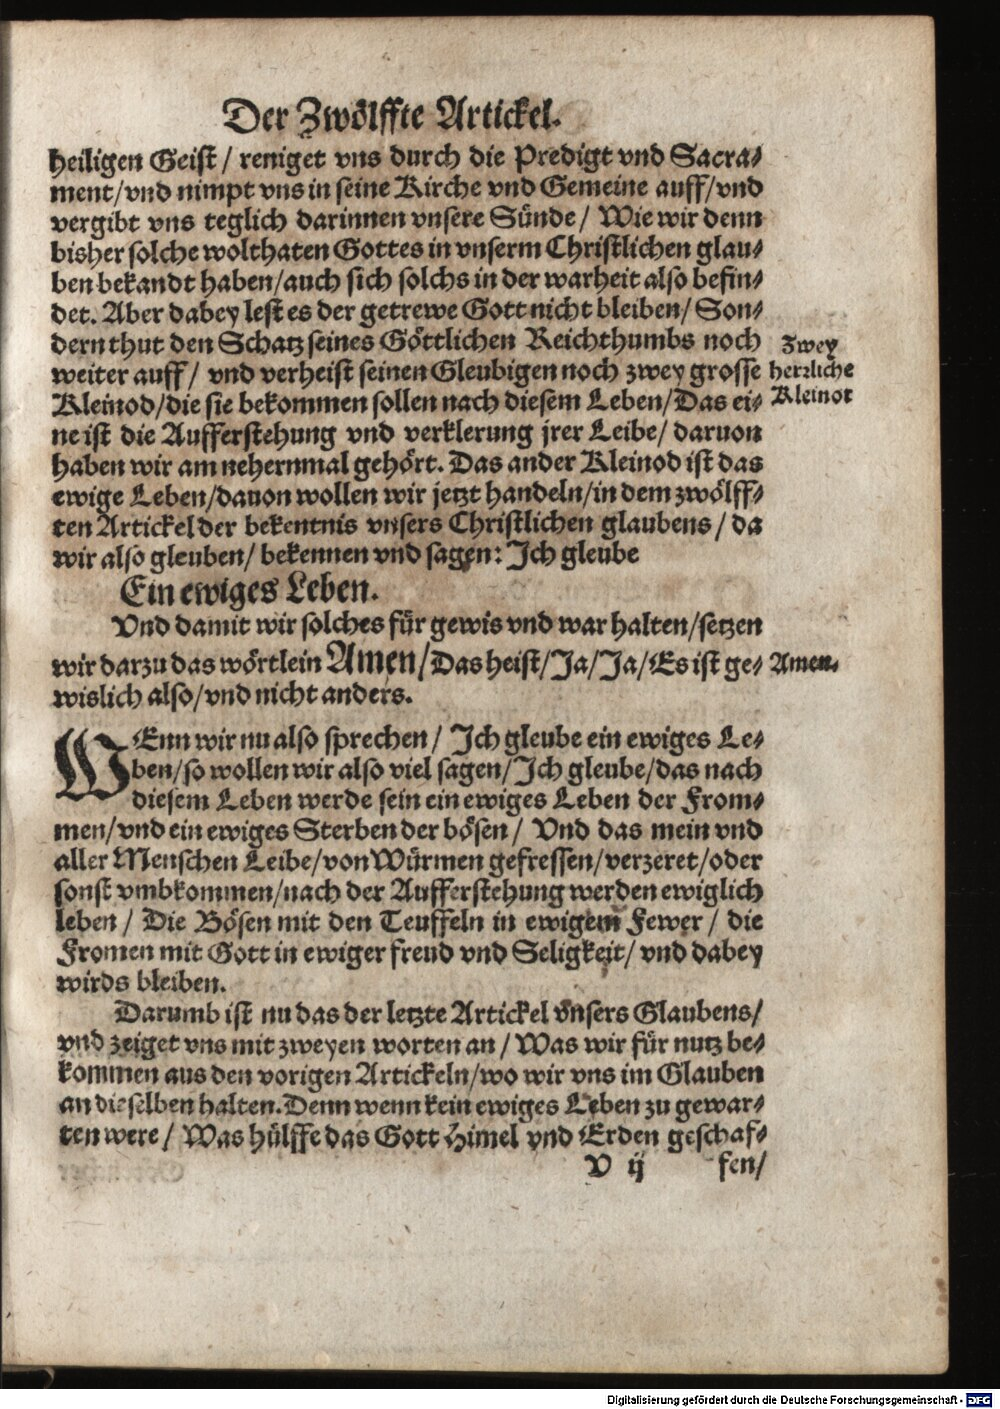 Der Zwölffte Artickel.
heiligen Geist / reniget vns durch die Predigt vnd Sacra-
ment/vnd nimpt vns in seine Kirche vnd Gemeine auff/vnd
vergibt vns teglich darinnen vnsere Sünde / Wie wir denn
bisher solche wolthaten Gottes in vnserm Christlichen glau-
ben bekandt haben/auch sich solchs in der warheit also befin-
det. Aber dabey lest es der getrewe Gott nicht bleiben/ Son-
dern thut den Schatz seines Göttlichen Reichthumbs noch
weiter auff/ vnd verheist seinen Gleubigen noch zwey grosse
Kleinod/die sie bekommen sollen nach diesem Leben/Das ei-
ne ist die Aufferstehung vnd verklerung jrer Leibe/ daruon
haben wir am nehernmal gehört. Das ander Kleinod ist das
ewige Leben/dauon wollen wir jetzt handeln/in dem zwölff-
ten Artickel der bekentnis vnsers Christlichen glaubens / da
wir also gleuben/ bekennen vnd sagen: Ich gleube
Zwey
herrliche
Kleinot
Ein ewiges Leben.
Vnd damit wir solches für gewis vnd war halten/setzen
wir darzu das wörtlein Amen/Das heist/Ja/Ja/Es ist ge-
wislich also/vnd nicht anders.
Amen.
WEnn wir nu also sprechen/ Ich gleube ein ewiges Le-
ben/so wollen wir also viel sagen/Ich gleube/das nach
diesem Leben werde sein ein ewiges Leben der From-
men/vnd ein ewiges Sterben der bösen/ Vnd das mein vnd
aller Menschen Leibe/von Würmen gefressen/verzeret/oder
sonst vmbkommen/nach der Aufferstehung werden ewiglich
leben / Die Bösen mit den Teuffeln in ewigem Fewer / die
Fromen mit Gott in ewiger freud vnd Seligkeit/ vnd dabey
wirds bleiben.
Darumb ist nu das der letzte Artickel vnsers Glaubens/
vnd zeiget vns mit zweyen worten an / Was wir für nutz be-
kommen aus den vorigen Artickeln/wo wir vns im Glauben
an dieselben halten. Denn wenn kein ewiges Leben zu gewar-
ten were / Was hülffe das Gott Himel vnd Erden geschaf-
V ij fen/
Digitalisierung gefördert durch die Deutsche Forschungsgemeinschaft - DFG